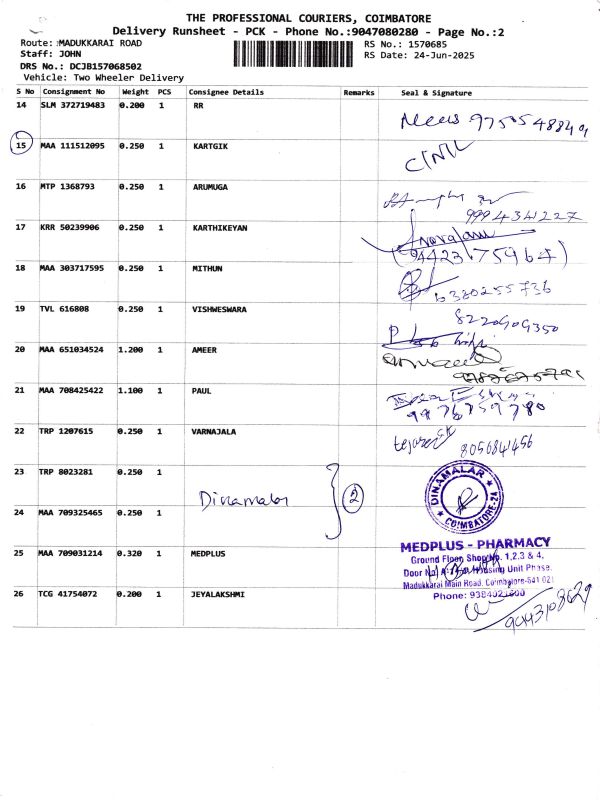 THE PROFESSIONAL COURIERS, COIMBATORE
Delivery Runsheet - PCK - Phone No.:9047080280 - Page No.:2
Route: :MADUKKARAI ROAD
RS No.: 1570685
Staff: JOHN
RS Date: 24-Jun-2025
DRS No.: DCJB157068502
Vehicle: Two Wheeler Delivery
S No Consignment No Weight PCS Consignee Details Remarks Seal & Signature
14 SLM 372719483 0.200 1 RR
15 MAA 111512095 0.250 1 KARTGIK
16 MTP 1368793 0.250 1 ARUMUGA
9994341227
17 KRR 50239906 0.250 1 KARTHIKEYAN
(9442375964)
18 MAA 303717595 0.250 1 MITHUN
6380255736
19 TVL 616808 0.250 1 VISHWESWARA
8220909350
20 MAA 651034524 1.200 1 AMEER
21 MAA 708425422 1.100 1 PAUL
22 TRP 1207615 0.250 1 VARNAJALA
8056841456
23 TRP 8023281 0.250 1
Dinamalar
2
DINAMALAR
COIMBATORE-2A
24 MAA 709325465 0.250 1
25 MAA 709031214 0.320 1 MEDPLUS
MEDPLUS - PHARMACY
Ground Floor Shop No. 1,2,3 & 4,
Door No Housing Unit Phase.
Madukkarai Main Road. Coimbatore-641 021
Phone: 9384021600
26 TCG 41754072 0.200 1 JEYALAKSHMI